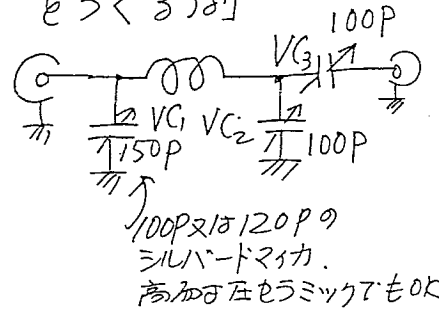 をつくろう]
100P
VC3
VC1
VC2
150P
100P
100P又は120Pの
シルバードマイカ.
高耐圧セラミックでもOK